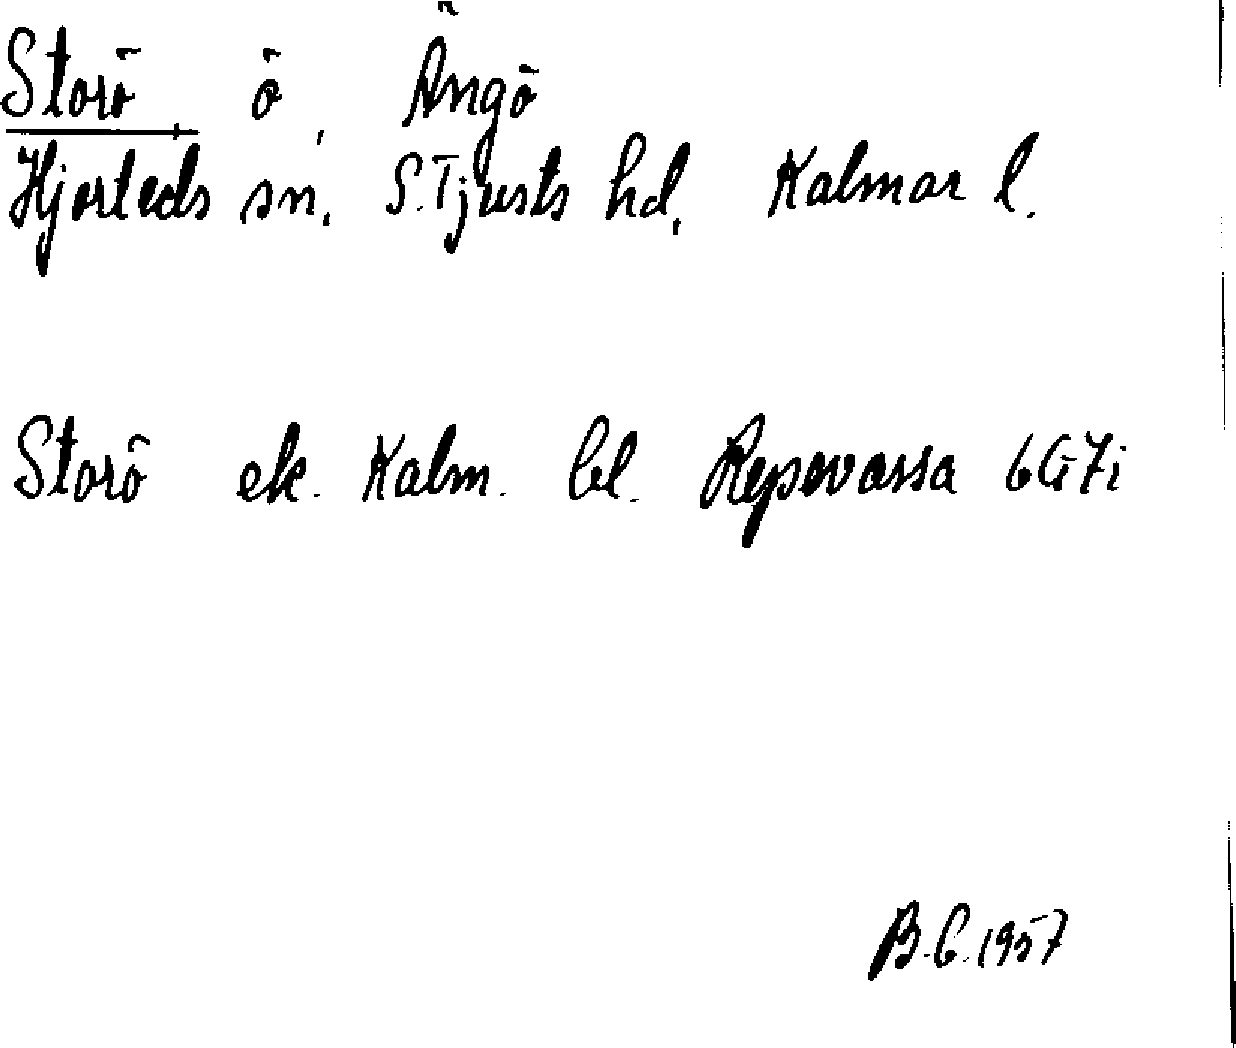 Storö ö, Ängö
Hjorteds sn, S. Tjusts hd, Kalmar l.
Storö ek. Kalm. bl. 6G7i
B.G. 1957